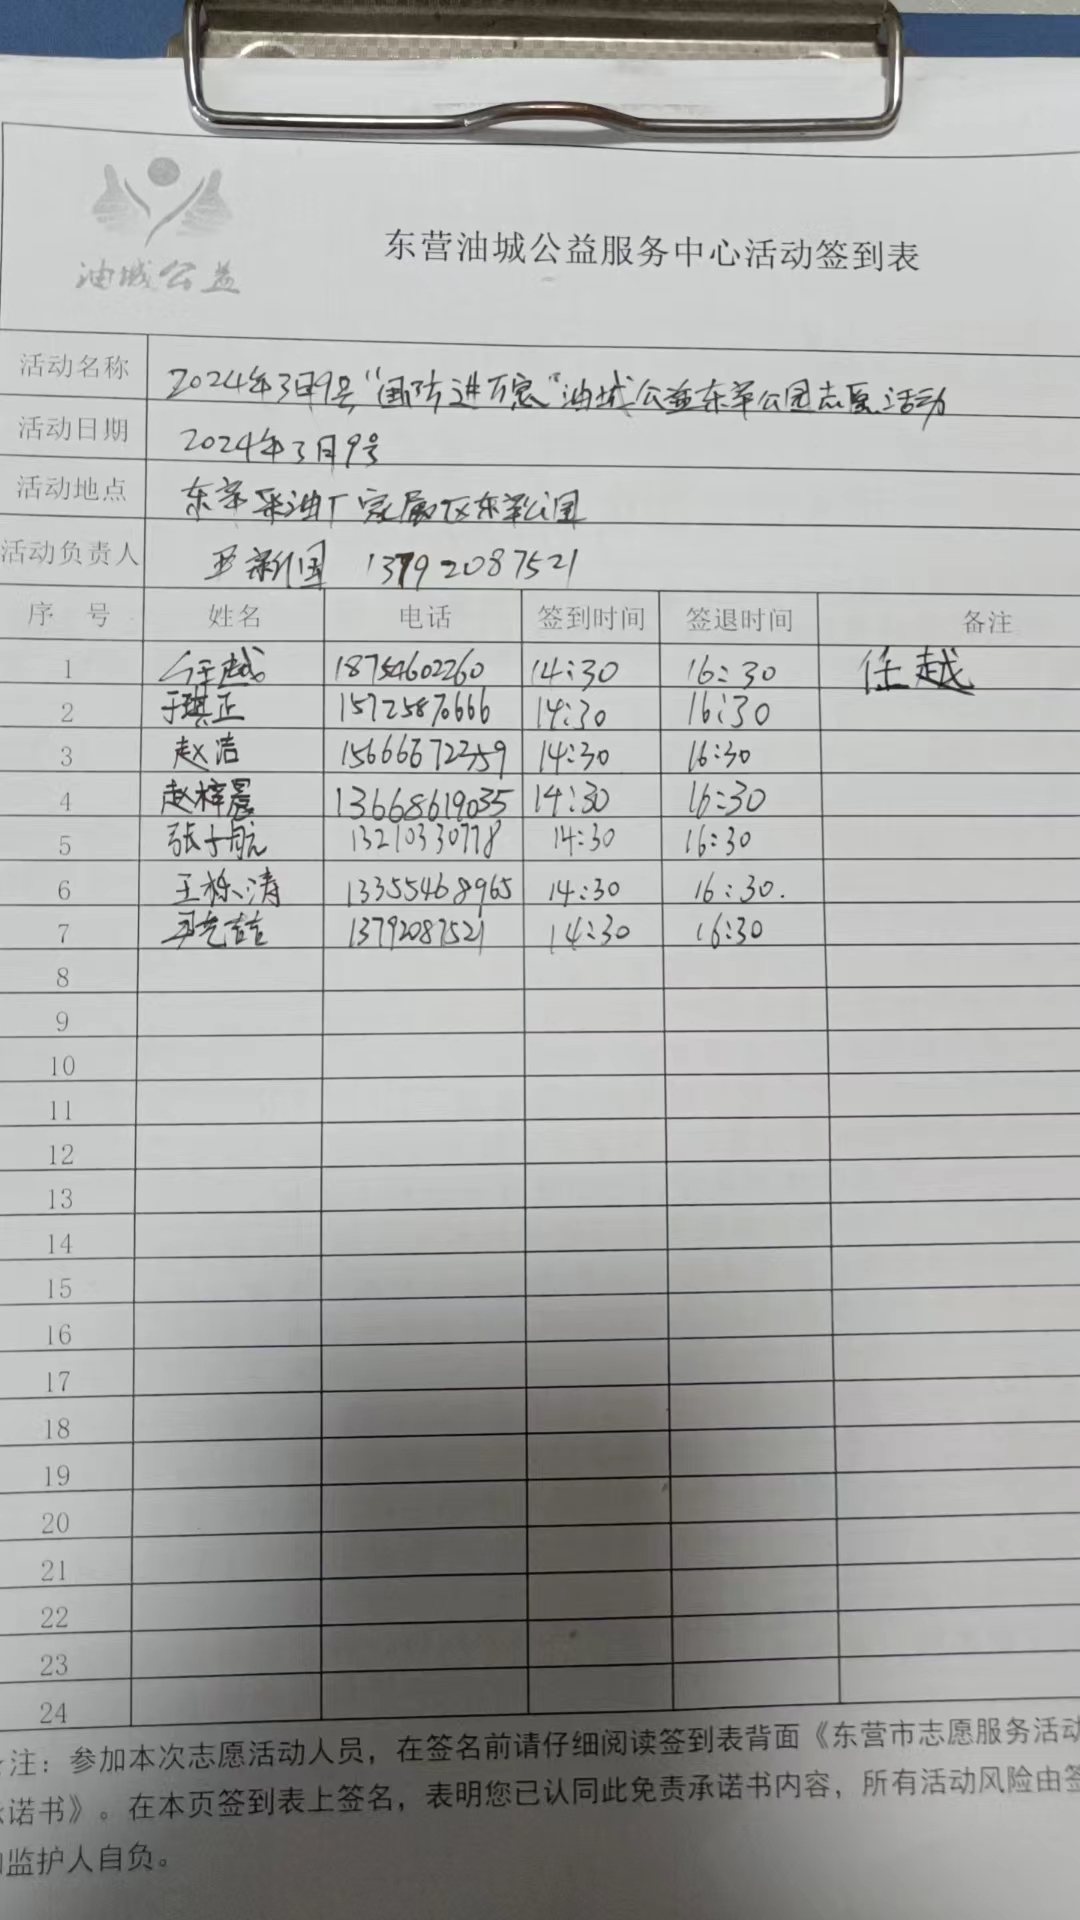 油城公益
东营油城公益服务中心活动签到表
活动名称 2024年3月9号“国防进万家”油城公益东辛公园志愿活动
活动日期 2024年3月9号
活动地点 东辛采油厂家属区东辛公园
活动负责人 新国 13792087521
序 号 姓名 电话 签到时间 签退时间 备注
1 任越 18754602260 14:30 16:30 任越
2 于琪正 15725870666 14:30 16:30
3 赵洁 15666672759 14:30 16:30
4 赵梓晨 13668619035 14:30 16:30
5 张子航 13210330778 14:30 16:30
6 王栎涛 13355468965 14:30 16:30.
7 13792087521 14:30 16:30
8
9
10
11
12
13
14
15
16
17
18
19
20
21
22
23
24
注：参加本次志愿活动人员，在签名前请仔细阅读签到表背面《东营市志愿服务活动
诺书》。在本页签到表上签名，表明您已认同此免责承诺书内容，所有活动风险由签
监护人自负。